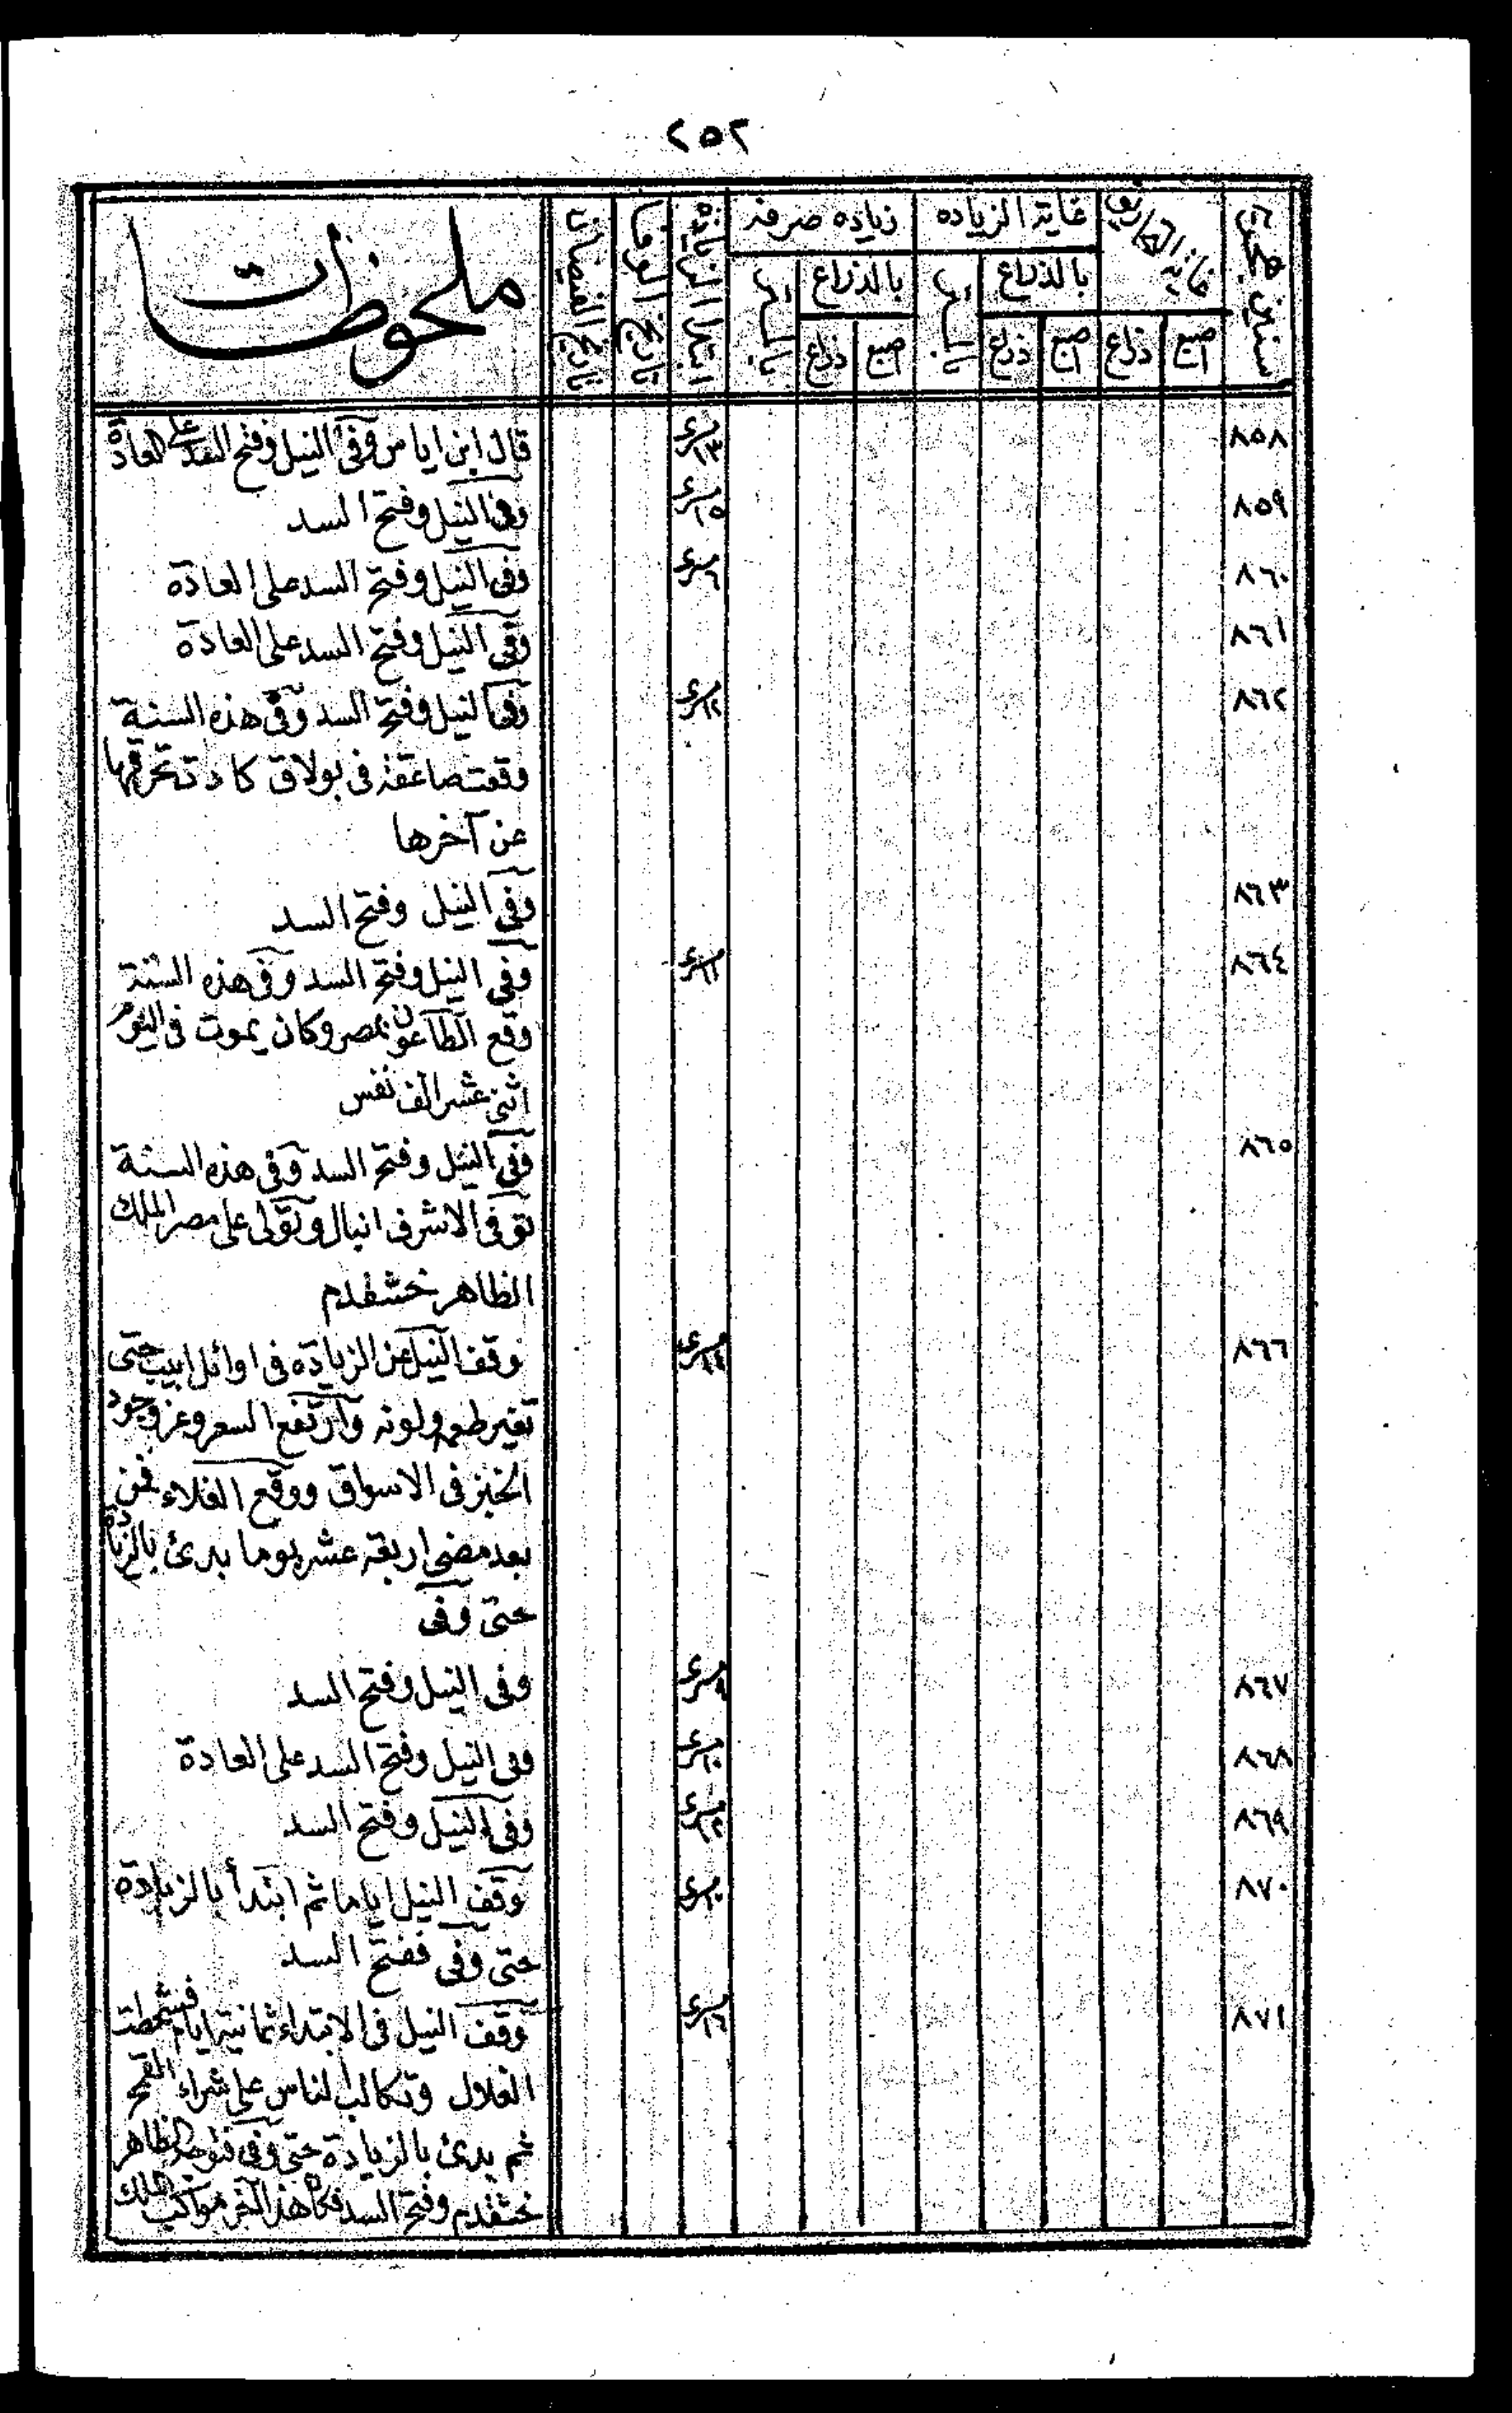 ٢٥٢
سنين هجرية
غاية التحاريق
غاية الزياده
زياده صرفه
ابتداء الزيادة
تاريخ الوفا
تاريخ الفيضان
ملحوظات
بالذراع
بالذراع
اصبع
ذراع
اصبع
ذراع
اصبع
ذراع
٨٥٨ ١٣ مسرى قال ابن اياس وفى النيل وفتح السد على العادة
٨٥٩ ١٥ مسرى وفى النيل وفتح السد
٨٦٠ ٦ مسرى وفى النيل وفتح السد على العادة
٨٦١ وفى النيل وفتح السد على العادة
٨٦٢ ١٢ مسرى وفى النيل وفتح السد وفى هذه السنة
وقعت صاعقة فى بولاق كادت تحرقها
عن آخرها
٨٦٣ وفى النيل وفتح السد
٨٦٤ ١١ مسرى وفى النيل وفتح السد وفى هذه السنة
وقع الطاعون بمصر وكان يموت فى اليوم
اثنى عشر الف نفس
٨٦٥ وفى النيل وفتح السد وفى هذه السنة
توفى الاشرف انيال وتولى على مصر الملك
الظاهر خشقدم
٨٦٦ ١٤ مسرى وقف النيل عن الزيادة فى اوائل ابيب حتى
تغير طعمه ولونه وارتفع السعر وعز وجود
الخبز فى الاسواق ووقع الغلاء فمن
بعد مضى اربعة عشر يوما بدئ بالزيادة
حتى وفى
٨٦٧ ٩ مسرى وفى النيل وفتح السد
٨٦٨ ١٠ مسرى وفى النيل وفتح السد على العادة
٨٦٩ ١٢ مسرى وفى النيل وفتح السد
٨٧٠ مسرى وقف النيل اياما ثم ابتدأ بالزيادة
حتى وفى ففتح السد
٨٧١ ١٦ مسرى وقف النيل فى الابتداء ثمانية ايام فشحطت
الغلال وتكالب الناس على شراء القمح
ثم بدئ بالزيادة حتى وفى فتوجه الظاهر
خشقدم وفتح السد فكان هذا آخر مواكب الملك